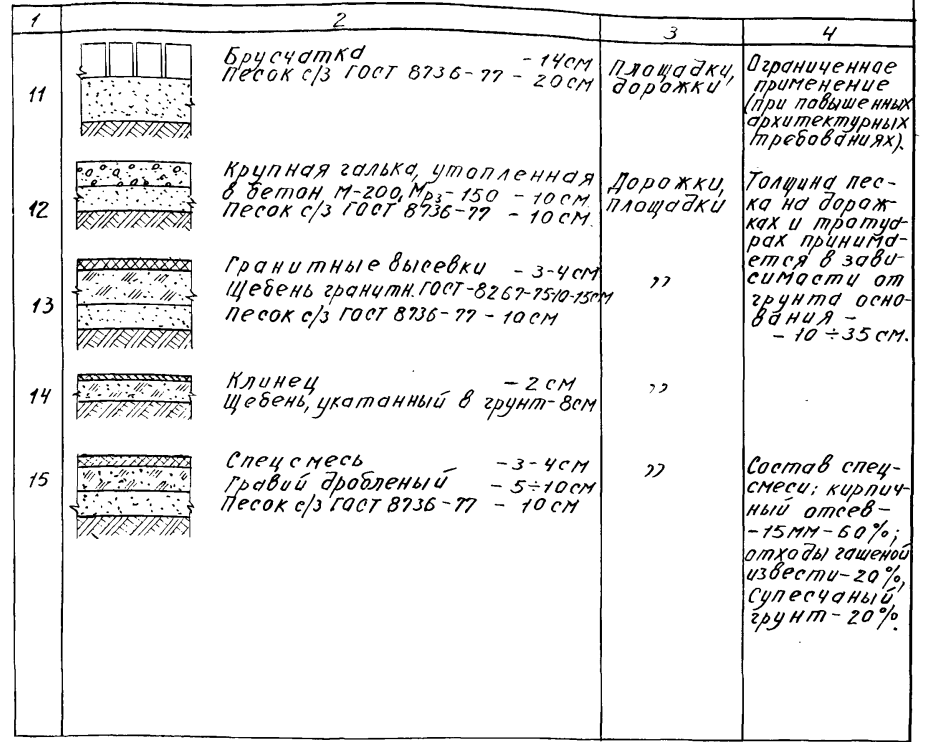 1 2 3 4
11
Брусчатка - 14см
Песок с/з ГОСТ 8736-77 - 20см
Площадки,
дорожки
Ограниченное
применение
(при повышенных
архитектурных
требованиях).
12
Крупная галька, утопленная
в бетон М-200, Мрз-150 - 10см.
Песок с/з ГОСТ 8736-77 - 10см.
Дорожки,
площадки
Толщина пес-
ка на дорож-
ках и тротуа-
рах принима-
ется в зави-
симости от
грунта осно-
вания -
- 10÷35 см.
13
Гранитные высевки - 3-4см
Щебень гранитн. ГОСТ-8267-75 10-15см
Песок с/з ГОСТ 8736-77 - 10см
״
14
Клинец - 2см
Щебень, укатанный в грунт - 8см
״
15
Спецсмесь - 3-4см
Гравий дробленый - 5÷10см
Песок с/з ГОСТ 8736-77 - 10см
״
Состав спец-
смеси: кирпич-
ный отсев -
-15мм-60%;
отходы гашеной
извести-20%,
Супесчаный
грунт-20%.